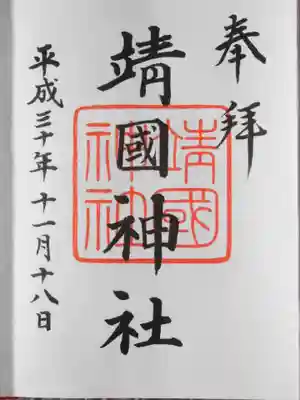 奉拝
靖國神社
靖國
神社
平成三十年十一月十八日